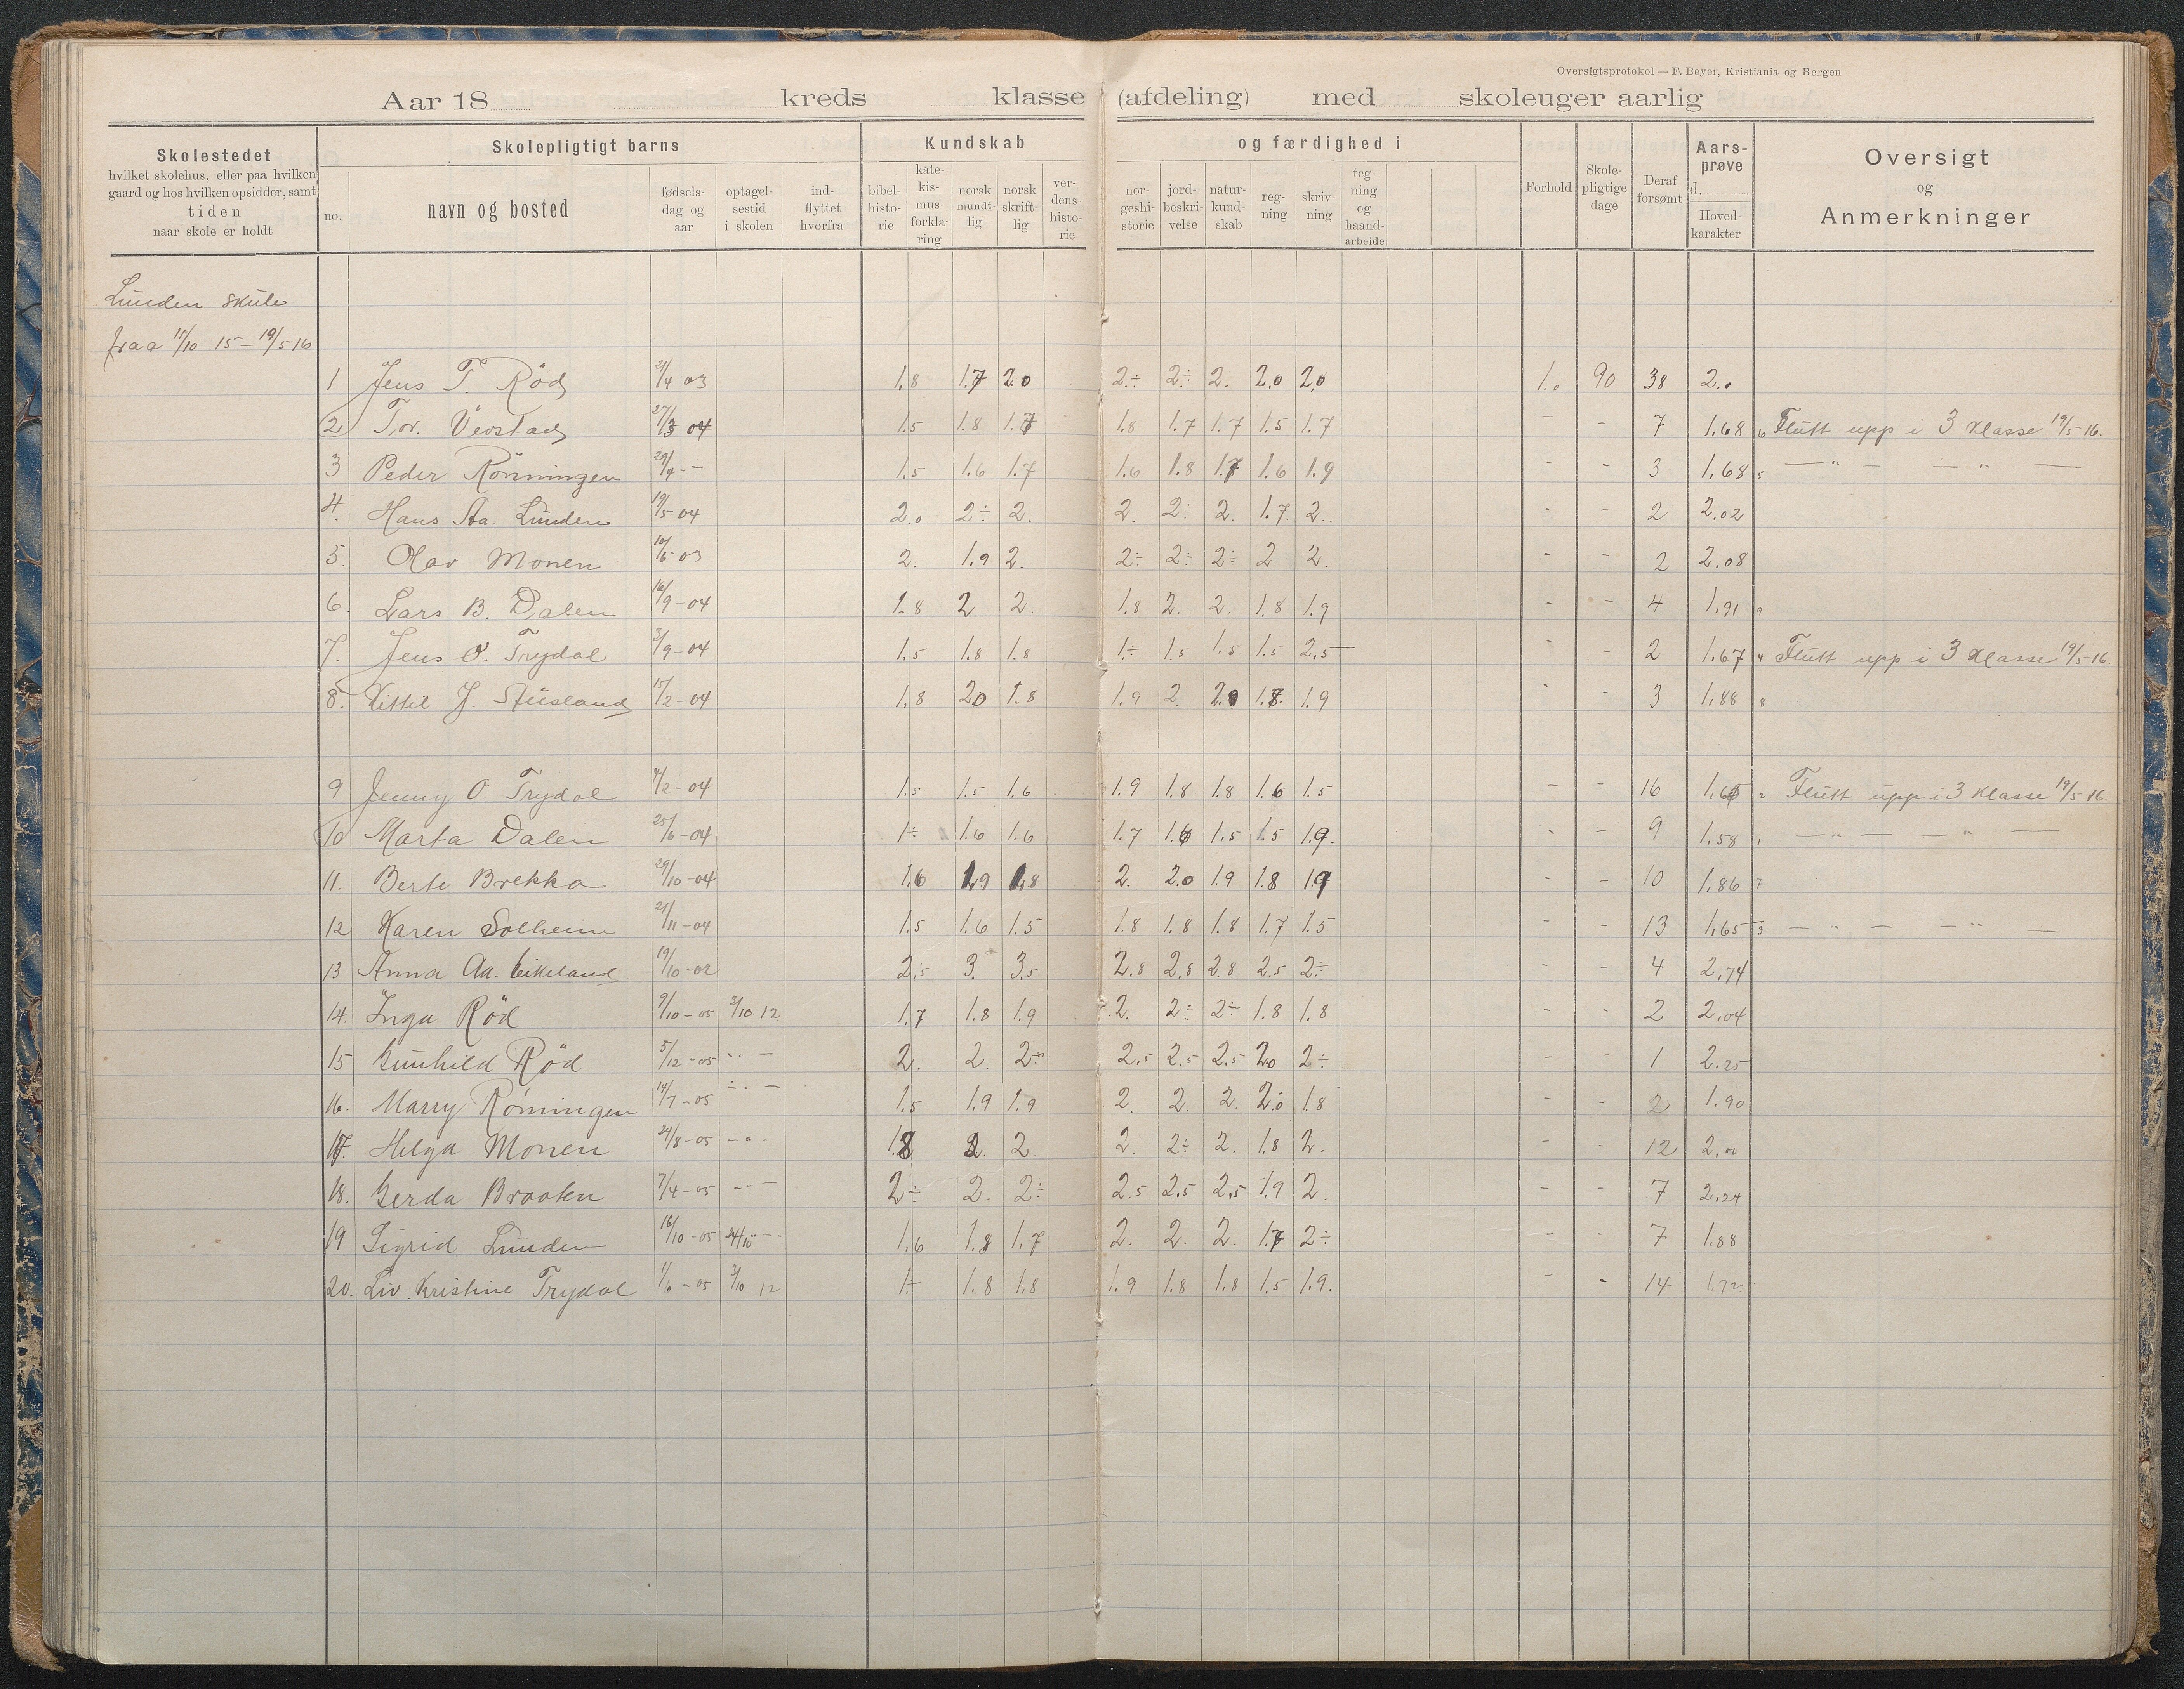 Oversigtsprotokol — F. Beyer, Kristiania og Bergen
Aar 18 kreds klasse (afdeling) med skoleuger aarlig
Skolestedet
hvilket skolehus, eller paa hvilken
gaard og hos hvilken opsidder, samt
tiden
naar skole er holdt
Skolepligtigt barns
no.
navn og bosted
fødsels-
dag og
aar
optagel-
sestid
i skolen
ind-
flyttet
hvorfra
Kundskab
bibel-
histo-
rie
kate-
kis-
mus-
forkla-
ring
norsk
mundt-
lig
norsk
skrift-
lig
ver-
dens-
histo-
rie
og færdighed i
nor-
geshi-
storie
jord-
beskri-
velse
natur-
kund-
skab
reg-
ning
skriv-
ning
teg-
ning
og
haand-
arbeide
Forhold
Skole-
pligtige
dage
Deraf
forsømt
Aars-
prøve
d.
Hoved-
karakter
Oversigt
og
Anmerkninger
Lunden skule
fraa 11/10 15 – 19/5 16
1 Jens T. Röd 21/4 03 1.8 1.7 2.0 2÷ 2÷ 2. 2.0 2.0 1.0 90 38 2.0
2 Tor. Vevstad 27/3 04 1.5 1.8 1.7 1.8 1.7 1.7 1.5 1.7 - - 7 1.68 6 Flutt upp i 3 klasse 19/5-16.
3 Peder Rönningen 29/4 - - 1.5 1.6 1.7 1.6 1.8 1.7 1.6 1.9 - - 3 1.68 5 — " — — " —
4. Hans Aa. Lunden 19/5-04 2.0 2÷ 2. 2. 2÷ 2. 1.7. 2.. - - 2 2.02
5. Olav Monen 10/6-03 2. 1.9 2. 2÷ 2÷ 2÷ 2 2. - - 2 2.08
6. Lars B. Dalen 16/9-04 1.8 2 2. 1.8 2. 2. 1.8 1.9 - - 4 1.91 9
7. Jens O. Trydal 3/9-04 1.5 1.8 1.8 1÷ 1.5 1.5 1.5 2.5 - - 2 1.67 4 Flutt upp i 3 klasse 19/5-16.
8. Kittil J. Stusland 15/2-04 1.8 20 1.8 1.9 2. 2.0 1.8. 1.9 - - 3 1.88 8
9 Jenny O. Trydal 4/2-04 1.5 1.5 1.6 1.9 1.8 1.8 1.6 1.5 - - 16 1.60 2 Flutt upp i 3 klasse 19/5-16.
10 Marta Dalen 25/6-04 1÷ 1.6 1.6 1.7 1.6 1.5 1.5 1.9. - - 9 1.58 1 — " — — " —
11. Berte Brekka 29/10-04 1.6 1.9 1.8 2. 2.0 1.9 1.8 1.9 - - 10 1.86 7
12 Karen Solheim 21/11-04 1.5 1.6 1.5 1.8 1.8 1.8 1.7 1.5 - - 13 1.65 3 — " — — " —
13 Anna Aa. Eikeland 19/10-02 2.5 3. 3.5 2.8 2.8 2.8 2.5 2÷ - - 4 2.74
14. Inga Röd 9/10-05 3/10 12 1.7 1.8 1.9 2. 2÷ 2÷ 1.8 1.8 - - 2 2.04
15 Gunhild Röd 5/12-05 " — 2. 2. 2÷ 2.5 2.5 2.5 2.0 2÷ - - 1 2.25
16. Marry Rönningen 14/7-05 — " — 1.5 1.9 1.9 2. 2. 2. 2.0 1.8 - - 2 1.90
17. Helga Monen 24/8-05 - " - 1.8 2. 2. 2. 2÷ 2. 1.8 2. - - 12 2.00
18. Gerda Braaten 7/4-05 - - - 2÷ 2. 2÷ 2.5 2.5 2.5 1.9 2. - - 7 2.24
19 Sigrid Lunden 16/10-05 24/10 - - 1.6 1.8 1.7 2. 2. 2. 1.7 2÷ - - 7 1.88
20. Liv Kristine Trydal 1/6-05 3/10 12 1÷ 1.8 1.8 1.9 1.8 1.8 1.5 1.9. - - 14 1.72